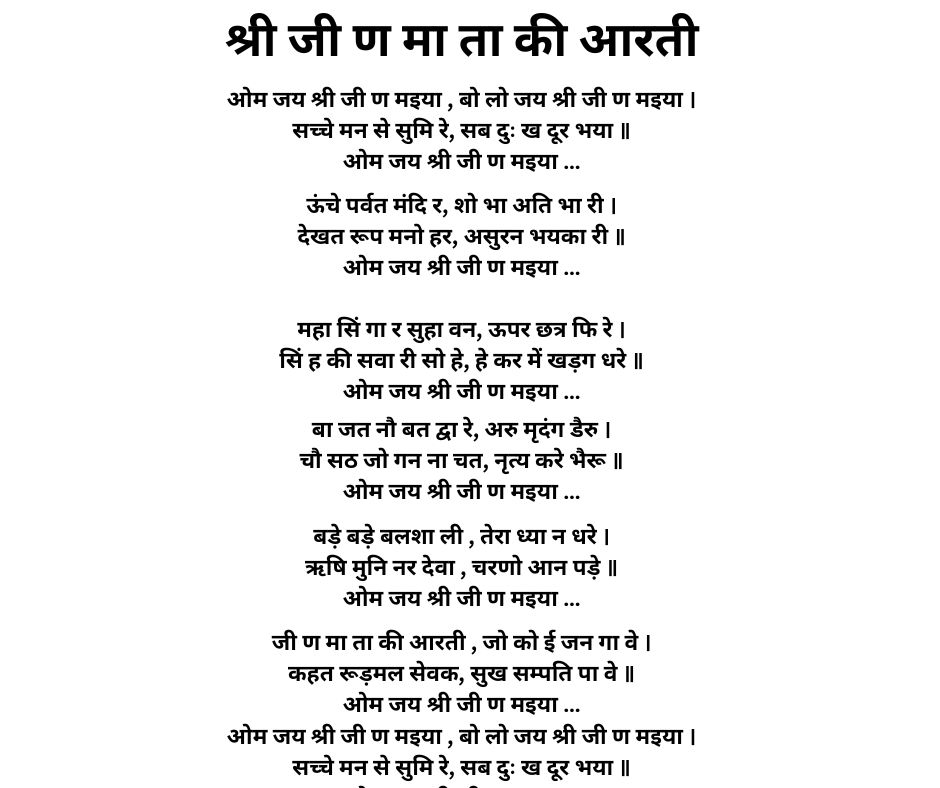 श्री जी ण मा ता की आरती
ओम जय श्री जी ण मइया , बो लो जय श्री जी ण मइया ।
सच्चे मन से सुमि रे, सब दुः ख दूर भया ॥
ओम जय श्री जी ण मइया ...
ऊंचे पर्वत मंदि र, शो भा अति भा री ।
देखत रूप मनो हर, असुरन भयका री ॥
ओम जय श्री जी ण मइया ...
महा सिं गा र सुहा वन, ऊपर छत्र फि रे ।
सिं ह की सवा री सो हे, हे कर में खड़ग धरे ॥
ओम जय श्री जी ण मइया ...
बा जत नौ बत द्वा रे, अरु मृदंग डैरु ।
चौ सठ जो गन ना चत, नृत्य करे भैरू ॥
ओम जय श्री जी ण मइया ...
बड़े बड़े बलशा ली , तेरा ध्या न धरे ।
ऋषि मुनि नर देवा , चरणो आन पड़े ॥
ओम जय श्री जी ण मइया ...
जी ण मा ता की आरती , जो को ई जन गा वे ।
कहत रूड़मल सेवक, सुख सम्पति पा वे ॥
ओम जय श्री जी ण मइया ...
ओम जय श्री जी ण मइया , बो लो जय श्री जी ण मइया ।
सच्चे मन से सुमि रे, सब दुः ख दूर भया ॥